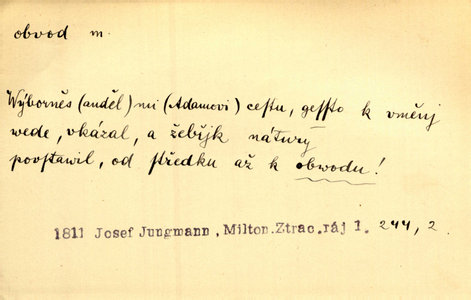 obvod m.
Wýborněs (anděl) mi (Adamovi) cestu, gessto k uměnj
wede, vkázal, a žebřjk nátury
povstawil, od středku až k obwodu!
1811 Josef Jungmann, Milton.Ztrac.ráj 1. 244, 2.